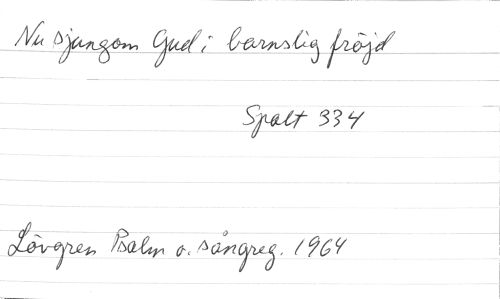 Nu sjungom Gud i barnslig fröjd
Spalt 334
Lövgren Psalm o. sångreg. 1964